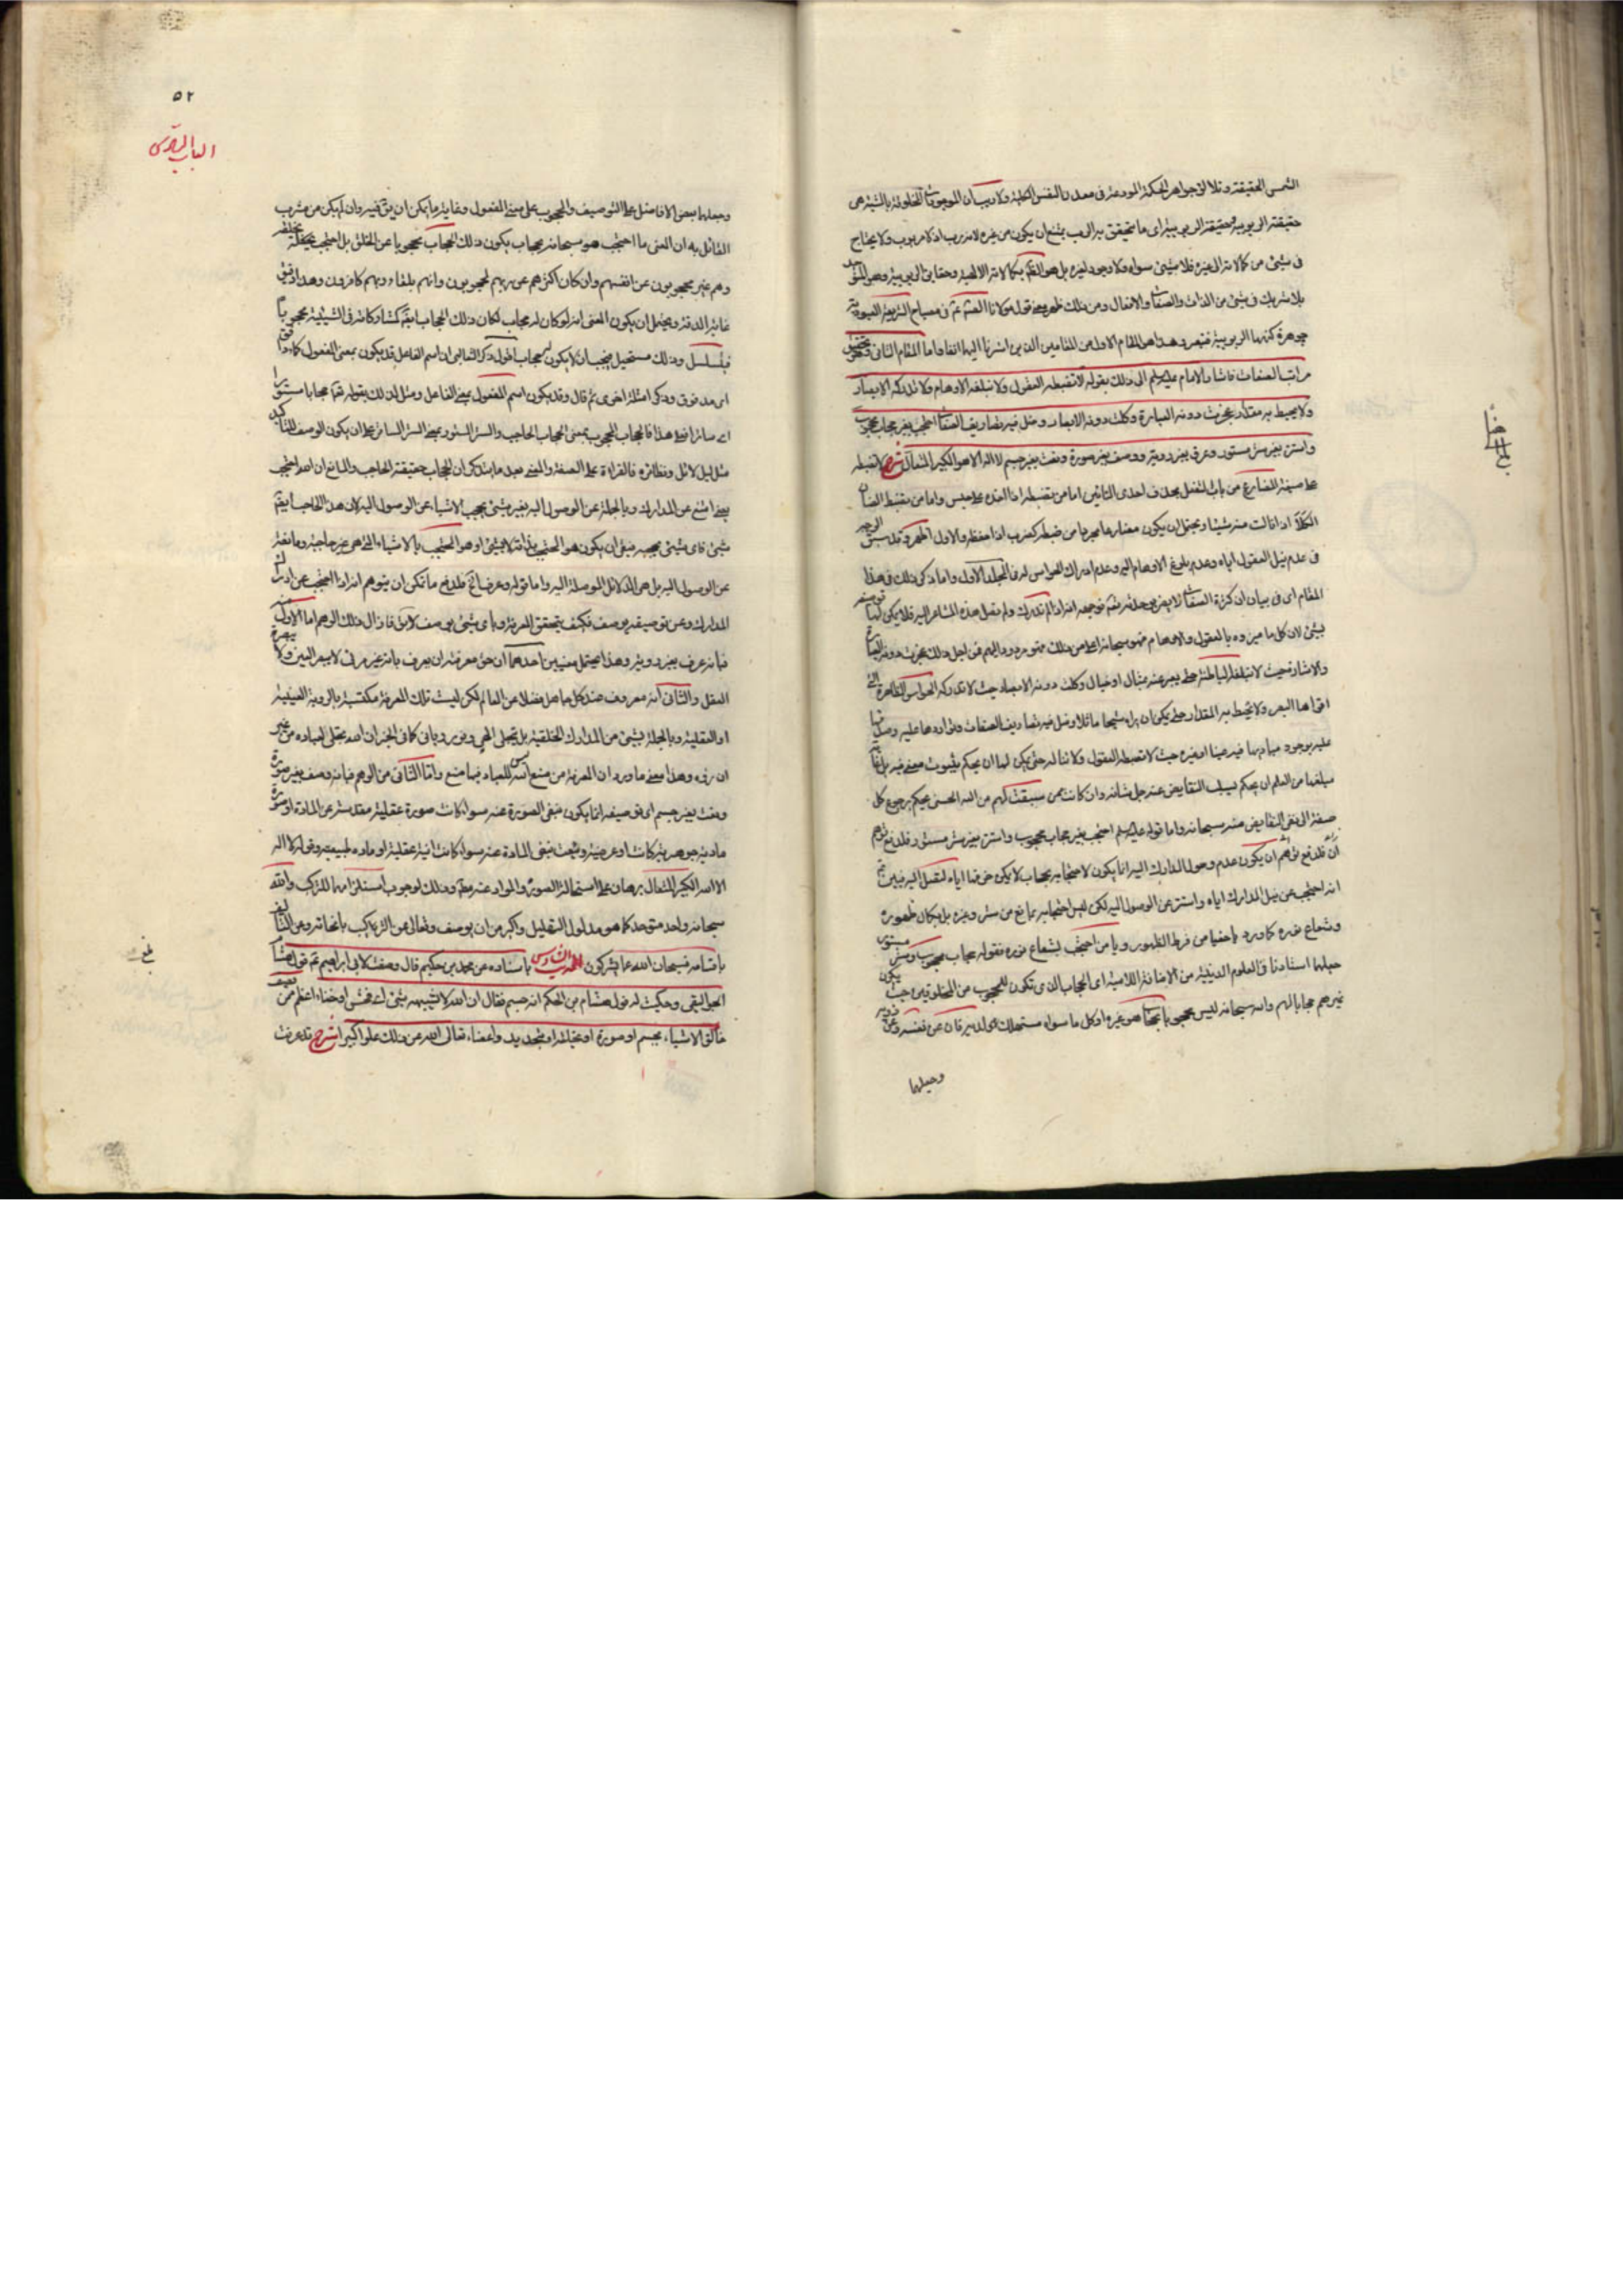 الشمس الحقيقة وتلألؤ جواهر الحكمة المودعة في معدن النفس الكلية ولا ريب ان الموجودات المخلوقة بالمشية هي
حقيقة الربوبية وحقيقة الربوبية اى ما يتحقق به الرب يمتنع ان يكون من غيره لانه رب اذ لا مربوب ولا يحتاج
في شئ من كمالاته الى غيره فلا شئ سواه ولا وجود لغيره بل هو القائم بكمالاته الالهية وحقايق الربوبية وهو المتوحد
بلا شريك في شئ من الذات والصفات والافعال ومن ذلك ظهر معنى قول مولانا الصادق ع في مصباح الشريعة العبودية
جوهرة كنهها الربوبية فتبصر وهذا هو المقام الاول من المقامين الذين اشرنا اليها انفا واما المقام الثاني وهو تحقيق
مراتب الصفات فاشار الامام عليه السلم الى ذلك بقوله لا تضبطه العقول ولا تبلغه الاوهام ولا تدركه الابصار
ولا يحيط به مقدار عجزت دونه العبارة وكلت دونه الابصار وضل فيه تصاريف الصفات احتجب بغير حجاب محجوب
واستتر بغير ستر مستور وعرف بغير روية ووصف بغير صورة ونعت بغير جسم لا اله الا هو الكبير المتعال شرح لا تضبطه
على صيغة المضارع من باب التفعل بحذف احدى التائين اما من تضبطه اذا اخذه على حبس واما من تضبط الضان
الكلأ اذا نالت منه شيئا ويحتمل ان يكون مضارعا مجردا من ضبطه كضرب اذا حفظه والاول اظهر وقد سبق الوجه
في عدم نيل العقول اياه وعدم بلوغ الاوهام اليه وعدم ادراك الحواس له في المجلد الاول واما ذكر ذلك في هذا
المقام اى في بيان ان كثرة الصفات لا يضر بوحدته تعالى فوجهه انه اذا لم تدرك ولم تصل هذه المشاعر اليه فلا يمكن لها توصيفه
بشئ لان كل ما ميزوه بالعقول والاوهام فهو سبحانه اعلى من ذلك فهو مردود اليهم فمن اجل ذلك عجزت دونه العبارة
والاشارة حيث لا تبلغه الباطنة حتى يعبر عنه بمثال او خيال وكلت دونه الابصار حيث لا تدركه الحواس الظاهرة التي
اقواها البصر ولا يحيط به المقدار حتى يمكن ان يراه شبحا ماثلا وضل فيه تصاريف الصفات وتواردها عليه وصدقها
عليه بوجود مباديها فيه عينا او غيره حيث لا تضبطه العقول ولا تناله حتى يمكن لها ان يحكم بثبوت معنى فيه بل غاية
مبلغها من العلم ان يحكم بسلب النقايض عنه جل شانه وان كانت ممن سبقت لهم من الله الحسنى يحكم برجوع كل
صفة الى نفي النقايض منه سبحانه واما قوله عليه السلم احتجب بغير حجاب محجوب واستتر بغير ستر مستور فلدفع توهم
ان يكون عدم وصول المدارك اليه انما يكون لاحتجابه بحجاب لا يمكن خرقنا اياه لنصل اليه فبين ع
انه احتجب عن نيل المدارك اياه واستتر عن الوصول اليه لكن ليس احتجابه بمانع من ستر وغيره بل بكمال ظهوره
وشعاع نوره كما ورد يا خفيا من فرط الظهور ويا من احتجب بشعاع نوره فقوله حجاب محجوب وستر مستور
جعلها استادنا في العلوم الدينية من الاضافة اللامية اى الحجاب الذي تكون للمحجوب من المخلوقين حيث يكون
غيرهم حجابا لهم والله سبحانه ليس محجوبا بحجاب هو غيره اذ كل ما سواه مستهلك لديه فان عن نفسه وعن غيره
وجعلها
ضا
بلغ
٥٢
الباب السادس
وجعلها بعض الافاضل على التوصيف والمحجوب على معنى المفعول وغاية ما يمكن ان يق فيه وان لم يكن من مشرب
القائل به ان المعنى ما احتجب هو سبحانه بحجاب يكون ذلك الحجاب محجوبا عن الخلق بل احتجب بخلقه
وهم غير محجوبون عن انفسهم وان كان اكثرهم عن ربهم لمحجوبون وانهم بلقاء ربهم كافرون وهذا في
غاية الدقة ويحتمل ان يكون المعنى انه لو كان له حجاب لكان ذلك الحجاب ايضا كمشاركاته في الشيئية محجوبا
فيتسلسل وذلك مستحيل فيجب ان لا يكون له حجاب اقول ذكر الثعالبي ان اسم الفاعل قد يكون بمعنى المفعول كماء دافق
اى مدفوق وذكر امثلة اخرى ثم قال وقد يكون اسم المفعول بمعنى الفاعل ومثل لذلك بقوله تعالى حجابا مستورا
اى ساترا فعلى هذا فالحجاب المحجوب بمعنى الحجاب الحاجب والستر المستور بمعنى الستر الساتر على ان يكون الوصف للتاكيد
مثل ليل لائل ونظائره فالقراءة على الصفة والمعنى بعد ما يتذكر ان الحجاب حقيقة الحاجب والمانع ان الله احتجب
بمعنى امتنع عن المدارك وبالجملة عن الوصول اليه بغير شئ يحجب الاشياء عن الوصول اليه لان هذا الحاجب ايضا
شئ فاى شئ يحجبه فبقى ان يكون هو المحتجب بذاته لا بشئ او هو المحتجب بالاشياء التي هي غير حاجبة ومانعة
عن الوصول اليه بل هي الدلائل الموصلة اليه واما قوله وعرف الخ فلدفع ما يمكن ان يتوهم انه اذا احتجب عن ادراك
المدارك وعن توصيفه بوصف فكيف يتحقق المعرفة وباى شئ يوصف لانه فازال ذلك الوهم اما الاول
فبانه عرف بغير روية وهذا يحتمل معنيين احدهما ان حق معرفته ان يعرف بانه غير مرئى لا ببصر العين ولا بصيرة
العقل والثاني انه معروف عند كل جاهل فضلا عن العالم لكن ليست تلك المعرفة مكتسبة بالروية العينية
او العقلية وبالجملة بشئ من المدارك الخلقية بل بتجلى الهي ونور رباني كما في الخبر ان الله تجلى لعباده من غير
ان رؤه وهذا معنى ما ورد ان المعرفة من صنع الله ليس للعباد فيها صنع واما الثاني من الوهم فبانه وصف بغير صورة
ونعت بغير جسم اى توصيفه انما يكون بنفي الصورة عنه سواء كانت صورة عقلية مقدسة عن المادة او صورة
مادية جوهرية كانت او عرضية ونعته بنفي المادة عنه سواء كانت انية عقلية او مادة طبيعية وقوله لا اله
الا الله الكبير المتعال برهان على استحالة الصورة والمواد عنه تعالى وذلك لوجوب استلزامها للتركب والله
سبحانه واحد متوحد كما هو مدلول التهليل واكبر من ان يوصف وتعالى عن التركيب بانحائه وعن التأليف
باقسامه فسبحان الله عما يشركون الحديث السادس باسناده عن محمد بن حكيم قال وصفت لابي ابراهيم ع قول هشام
الجواليقي وحكيت له قول هشام بن الحكم انه جسم فقال ان الله لا يشبهه شئ اى فحش او خناء اعظم من قول من يصف
خالق الاشياء بجسم او صورة او بخلقة او بتحديد واعضاء تعالى الله عن ذلك علوا كبيرا شرح قد عرفت
بلغ